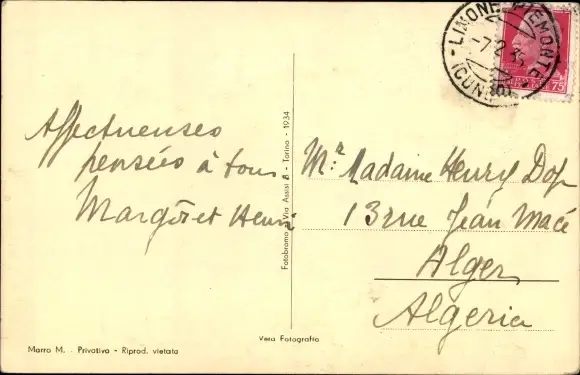 LIMONE PIEMONTE
-7.2.35
(CUNEO)
75
Affectueuses
pensées à tous
Margot et Henri
Mr Madame Henry Dop
13 rue Jean Macé
Alger
Algeria
Fotobromo - Via Assisi 8 - Torino - 1934
Vera Fotografia
Marro M. - Privativa - Riprod. vietata